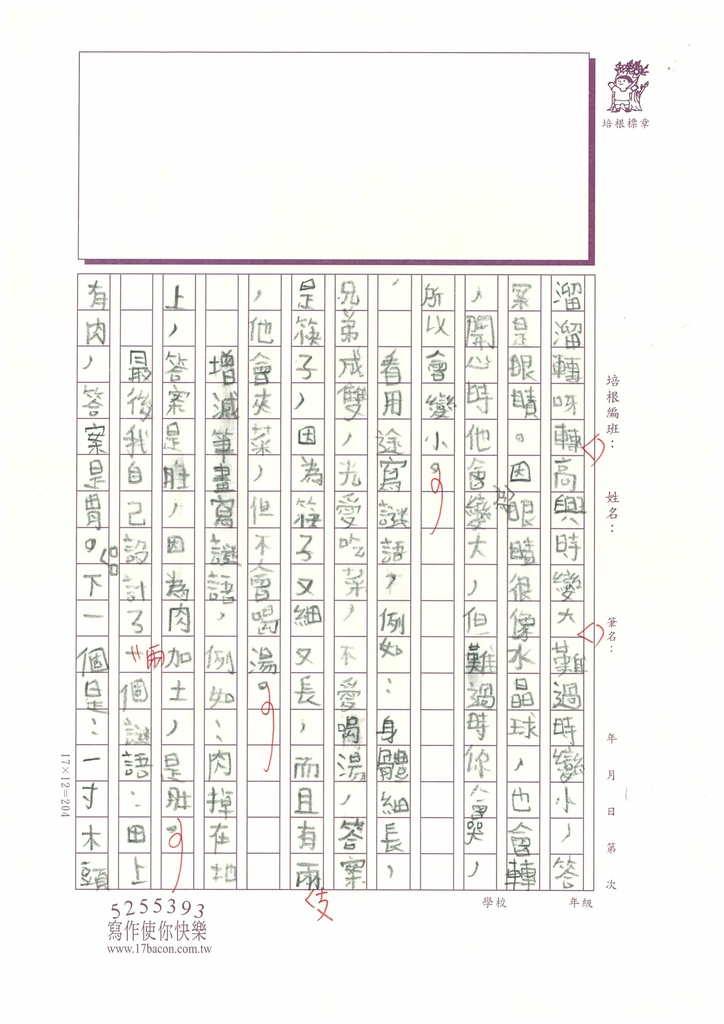 培根標章
培根編班：
姓名：
筆名：
年 月 日 第 次
學校
年級
溜溜轉呀轉高興時變大難過時變小，答
案是眼睛。因眼睛很像水晶球，也會轉
，開心時他會變大，但難過時你會哭，
所以會變小。
，看用途寫謎語，例如：身體細長，
兄弟成雙，光愛吃菜，不愛喝湯，答案
是筷子，因為筷子又細又長，而且有兩
支
，他會夾菜，但不會喝湯。
增減筆畫寫謎語，例如：肉掉在地
上，答案是肚，因為肉加土，是肚。
最後我自己設計了兩個謎語：田上
有肉，答案是胃。下一個是：一寸木頭
17×12=204
5255393
寫作使你快樂
www.17bacon.com.tw